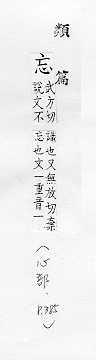 類篇
忘
武方切
說文不
識也又無放切棄
忘也文一重音一
(心部, P.385)